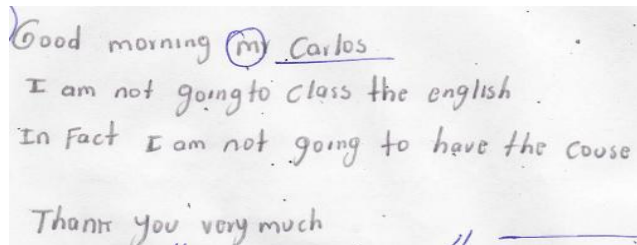 Good morning mr Carlos
I am not going to class the english.
In Fact I am not going to have the couse
Thank you very much